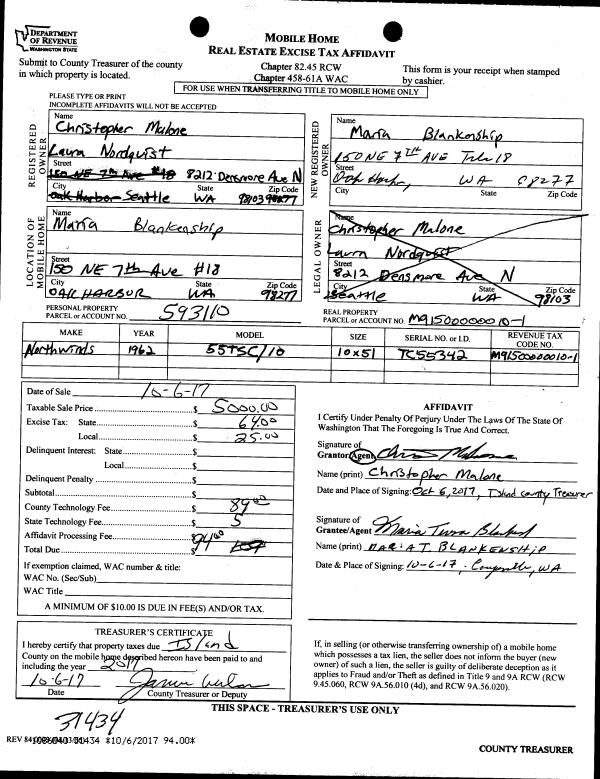 DEPARTMENT
OF REVENUE
WASHINGTON STATE
MOBILE HOME
REAL ESTATE EXCISE TAX AFFIDAVIT
Submit to County Treasurer of the county
in which property is located.
Chapter 82.45 RCW
Chapter 458-61A WAC
This form is your receipt when stamped
by cashier.
FOR USE WHEN TRANSFERRING TITLE TO MOBILE HOME ONLY
PLEASE TYPE OR PRINT
INCOMPLETE AFFIDAVITS WILL NOT BE ACCEPTED
REGISTERED OWNER
Name
Christopher Malone
Laura Nordquist
Street
150 NE 7th Ave #18 8212 Densmore Ave N
City State Zip Code
Oak Harbor Seattle WA 98103 98277
NEW REGISTERED OWNER
Name
Maria Blankenship
150 NE 7TH AVE Trlr 18
Street
Oak Harbor, WA 98277
City State Zip Code
LOCATION OF MOBILE HOME
Name
Maria Blankenship
Street
150 NE 7th Ave #18
City State Zip Code
OAK HARBOR WA 98277
LEGAL OWNER
Name
Christopher Malone
Laura Nordquist
Street
8212 Densmore Ave N
City State Zip Code
Seattle WA 98103
PERSONAL PROPERTY
PARCEL or ACCOUNT NO. 593110
REAL PROPERTY
PARCEL or ACCOUNT NO. M91500000010-1
MAKE YEAR MODEL SIZE SERIAL NO. or I.D. REVENUE TAX CODE NO.
Northwinds 1962 55TSC/10 10x51 TC55342 M9150000010-1
Date of Sale 10-6-17
Taxable Sale Price $ 5000.00
Excise Tax: State $ 64.00
Local $ 25.00
Delinquent Interest: State $
Local $
Delinquent Penalty $
Subtotal $
County Technology Fee $ 89.00
State Technology Fee $ 5
Affidavit Processing Fee $
Total Due $ 94.00
If exemption claimed, WAC number & title:
WAC No. (Sec/Sub)
WAC Title
A MINIMUM OF $10.00 IS DUE IN FEE(S) AND/OR TAX.
AFFIDAVIT
I Certify Under Penalty Of Perjury Under The Laws Of The State Of
Washington That The Foregoing Is True And Correct.
Signature of
Grantor/Agent
Name (print) Christopher Malone
Date and Place of Signing: Oct 6, 2017, Island county Treasurer
Signature of
Grantee/Agent
Name (print) MARIA T. BLANKENSHIP
Date & Place of Signing: 10-6-17, Coupeville, WA
TREASURER'S CERTIFICATE
I hereby certify that property taxes due Island
County on the mobile home described hereon have been paid to and
including the year 2017
10-6-17
Date County Treasurer or Deputy
If, in selling (or otherwise transferring ownership of) a mobile home
which possesses a tax lien, the seller does not inform the buyer (new
owner) of such a lien, the seller is guilty of deliberate deception as it
applies to Fraud and/or Theft as defined in Title 9 and 9A RCW (RCW
9.45.060, RCW 9A.56.010 (4d), and RCW 9A.56.020).
THIS SPACE - TREASURER'S USE ONLY
31434
REV 84 31434 *10/6/2017 94.00*
COUNTY TREASURER